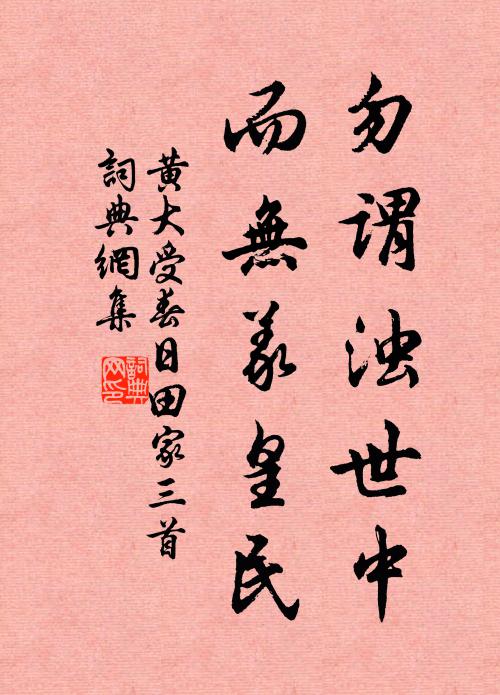 勿謂浊世中
而無羲皇民
黃大受春日田家三首
詞典網集
詞典
网印